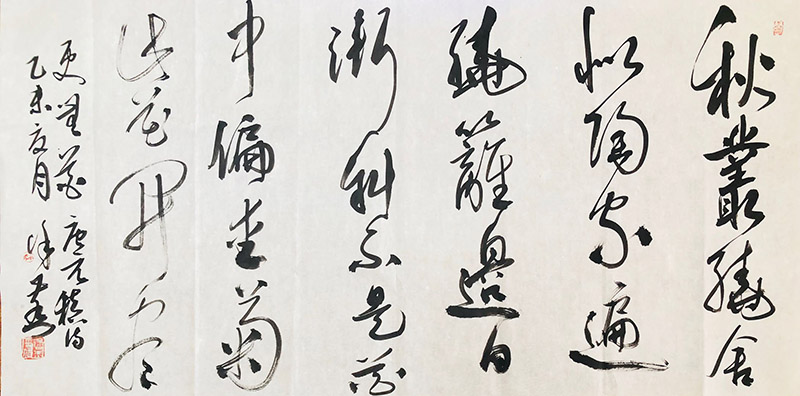 秋叢繞舍
似陶家遍
繞籬邊日
漸斜不是花
中偏愛菊
此花開盡
更無花 唐元稹詩
乙未夏月